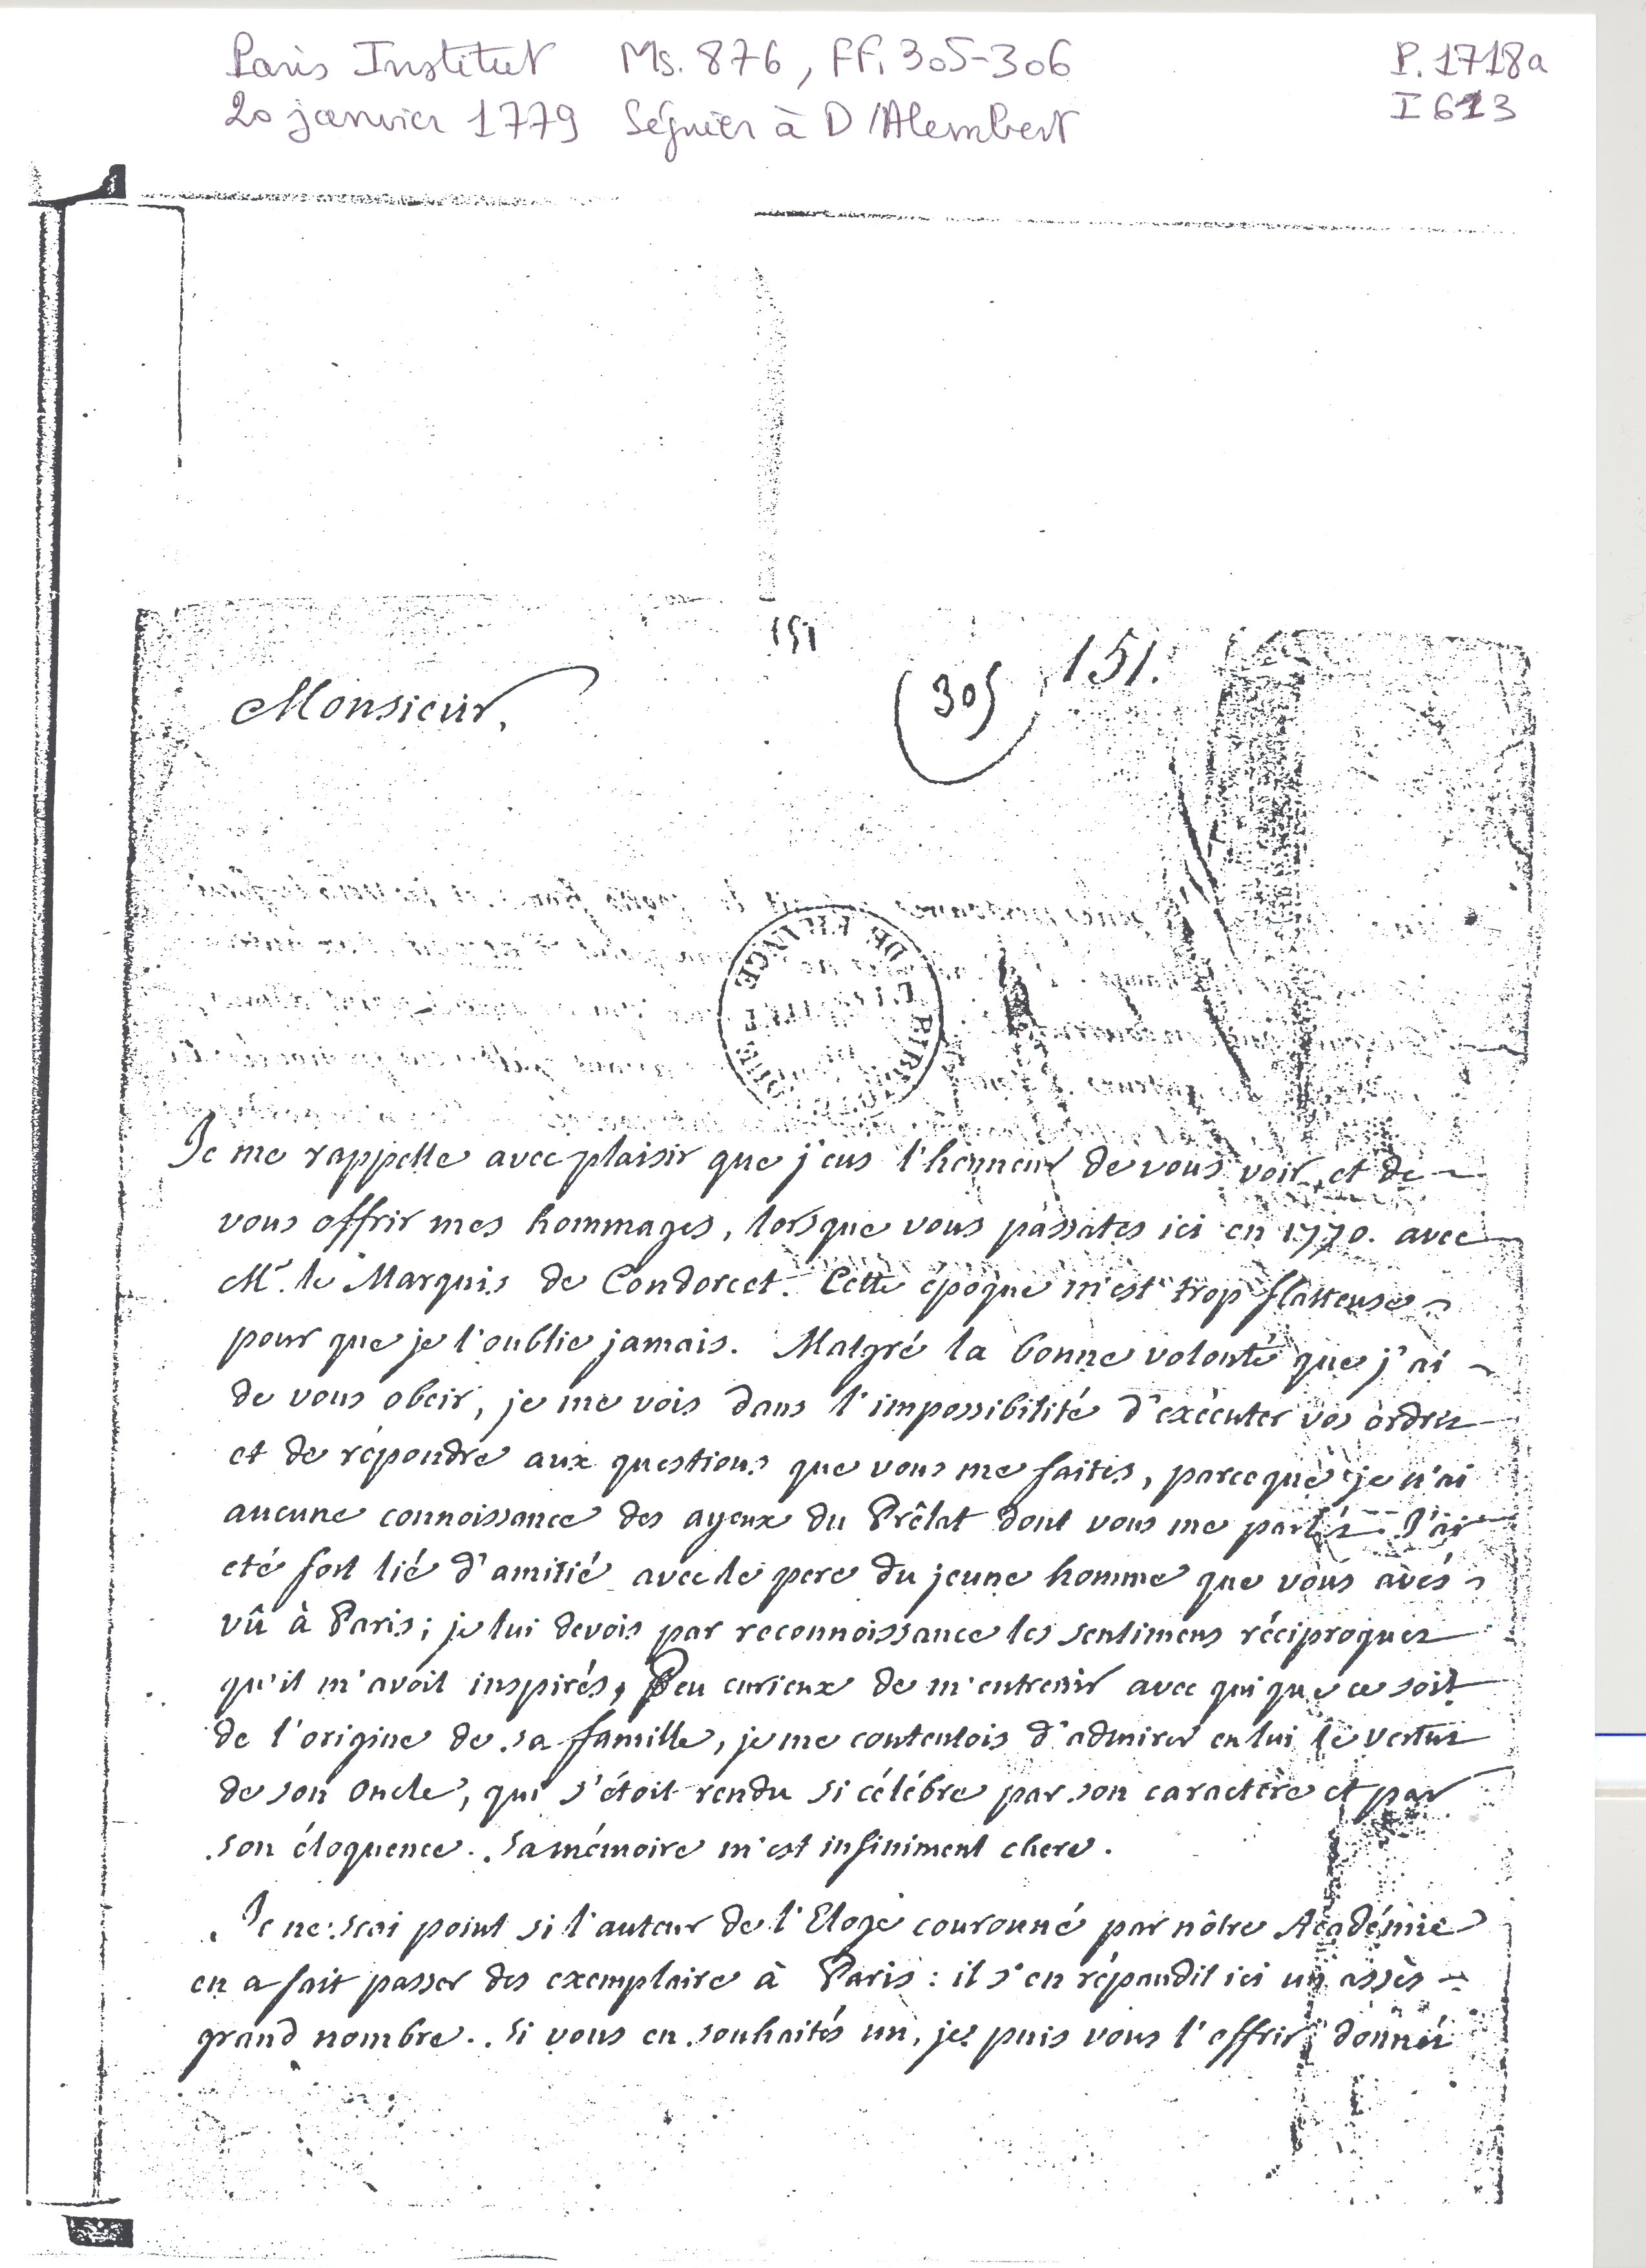 Paris Institut Ms. 876, FF. 305-306 P. 1718a
20 janvier 1779 Séguier à D'Alembert I 613
151
(305) 151.
Monsieur,
BIBLIOTHEQUE DE FRANCE
Je me rappelle avec plaisir que j'eus l'honneur de vous voir, et de
vous offrir mes hommages, lorsque vous passates ici en 1770. avec
Mr. le Marquis de Condorcet. Cette époque m'est trop flatteuse
pour que je l'oublie jamais. Malgré la bonne volonté que j'ai
de vous obeir, je me vois dans l'impossibilité d'exécuter vos ordres
et de répondre aux questions que vous me faites, parceque je n'ai
aucune connoissance des ayeux du Prêlat dont vous me parlés. J'ai
eté fort lié d'amitié avec le pere du jeune homme que vous avés
vû à Paris; je lui devois par reconnoissance les sentimens réciproques
qu'il m'avoit inspirés, Peu curieux de m'entretenir avec qui que ce soit
de l'origine de sa famille, je me contentois d'admirer en lui le vertus
de son oncle, qui s'étoit rendu si célébre par son caractère et par
son éloquence. Sa mémoire m'est infiniment chere.
Je ne scai point si l'auteur de l'Eloge couronné par nôtre Académie
en a fait passer des exemplaire à Paris: il s'en répandit ici un assès
grand nombre. Si vous en souhaités un, je puis vous l'offrir; donnés